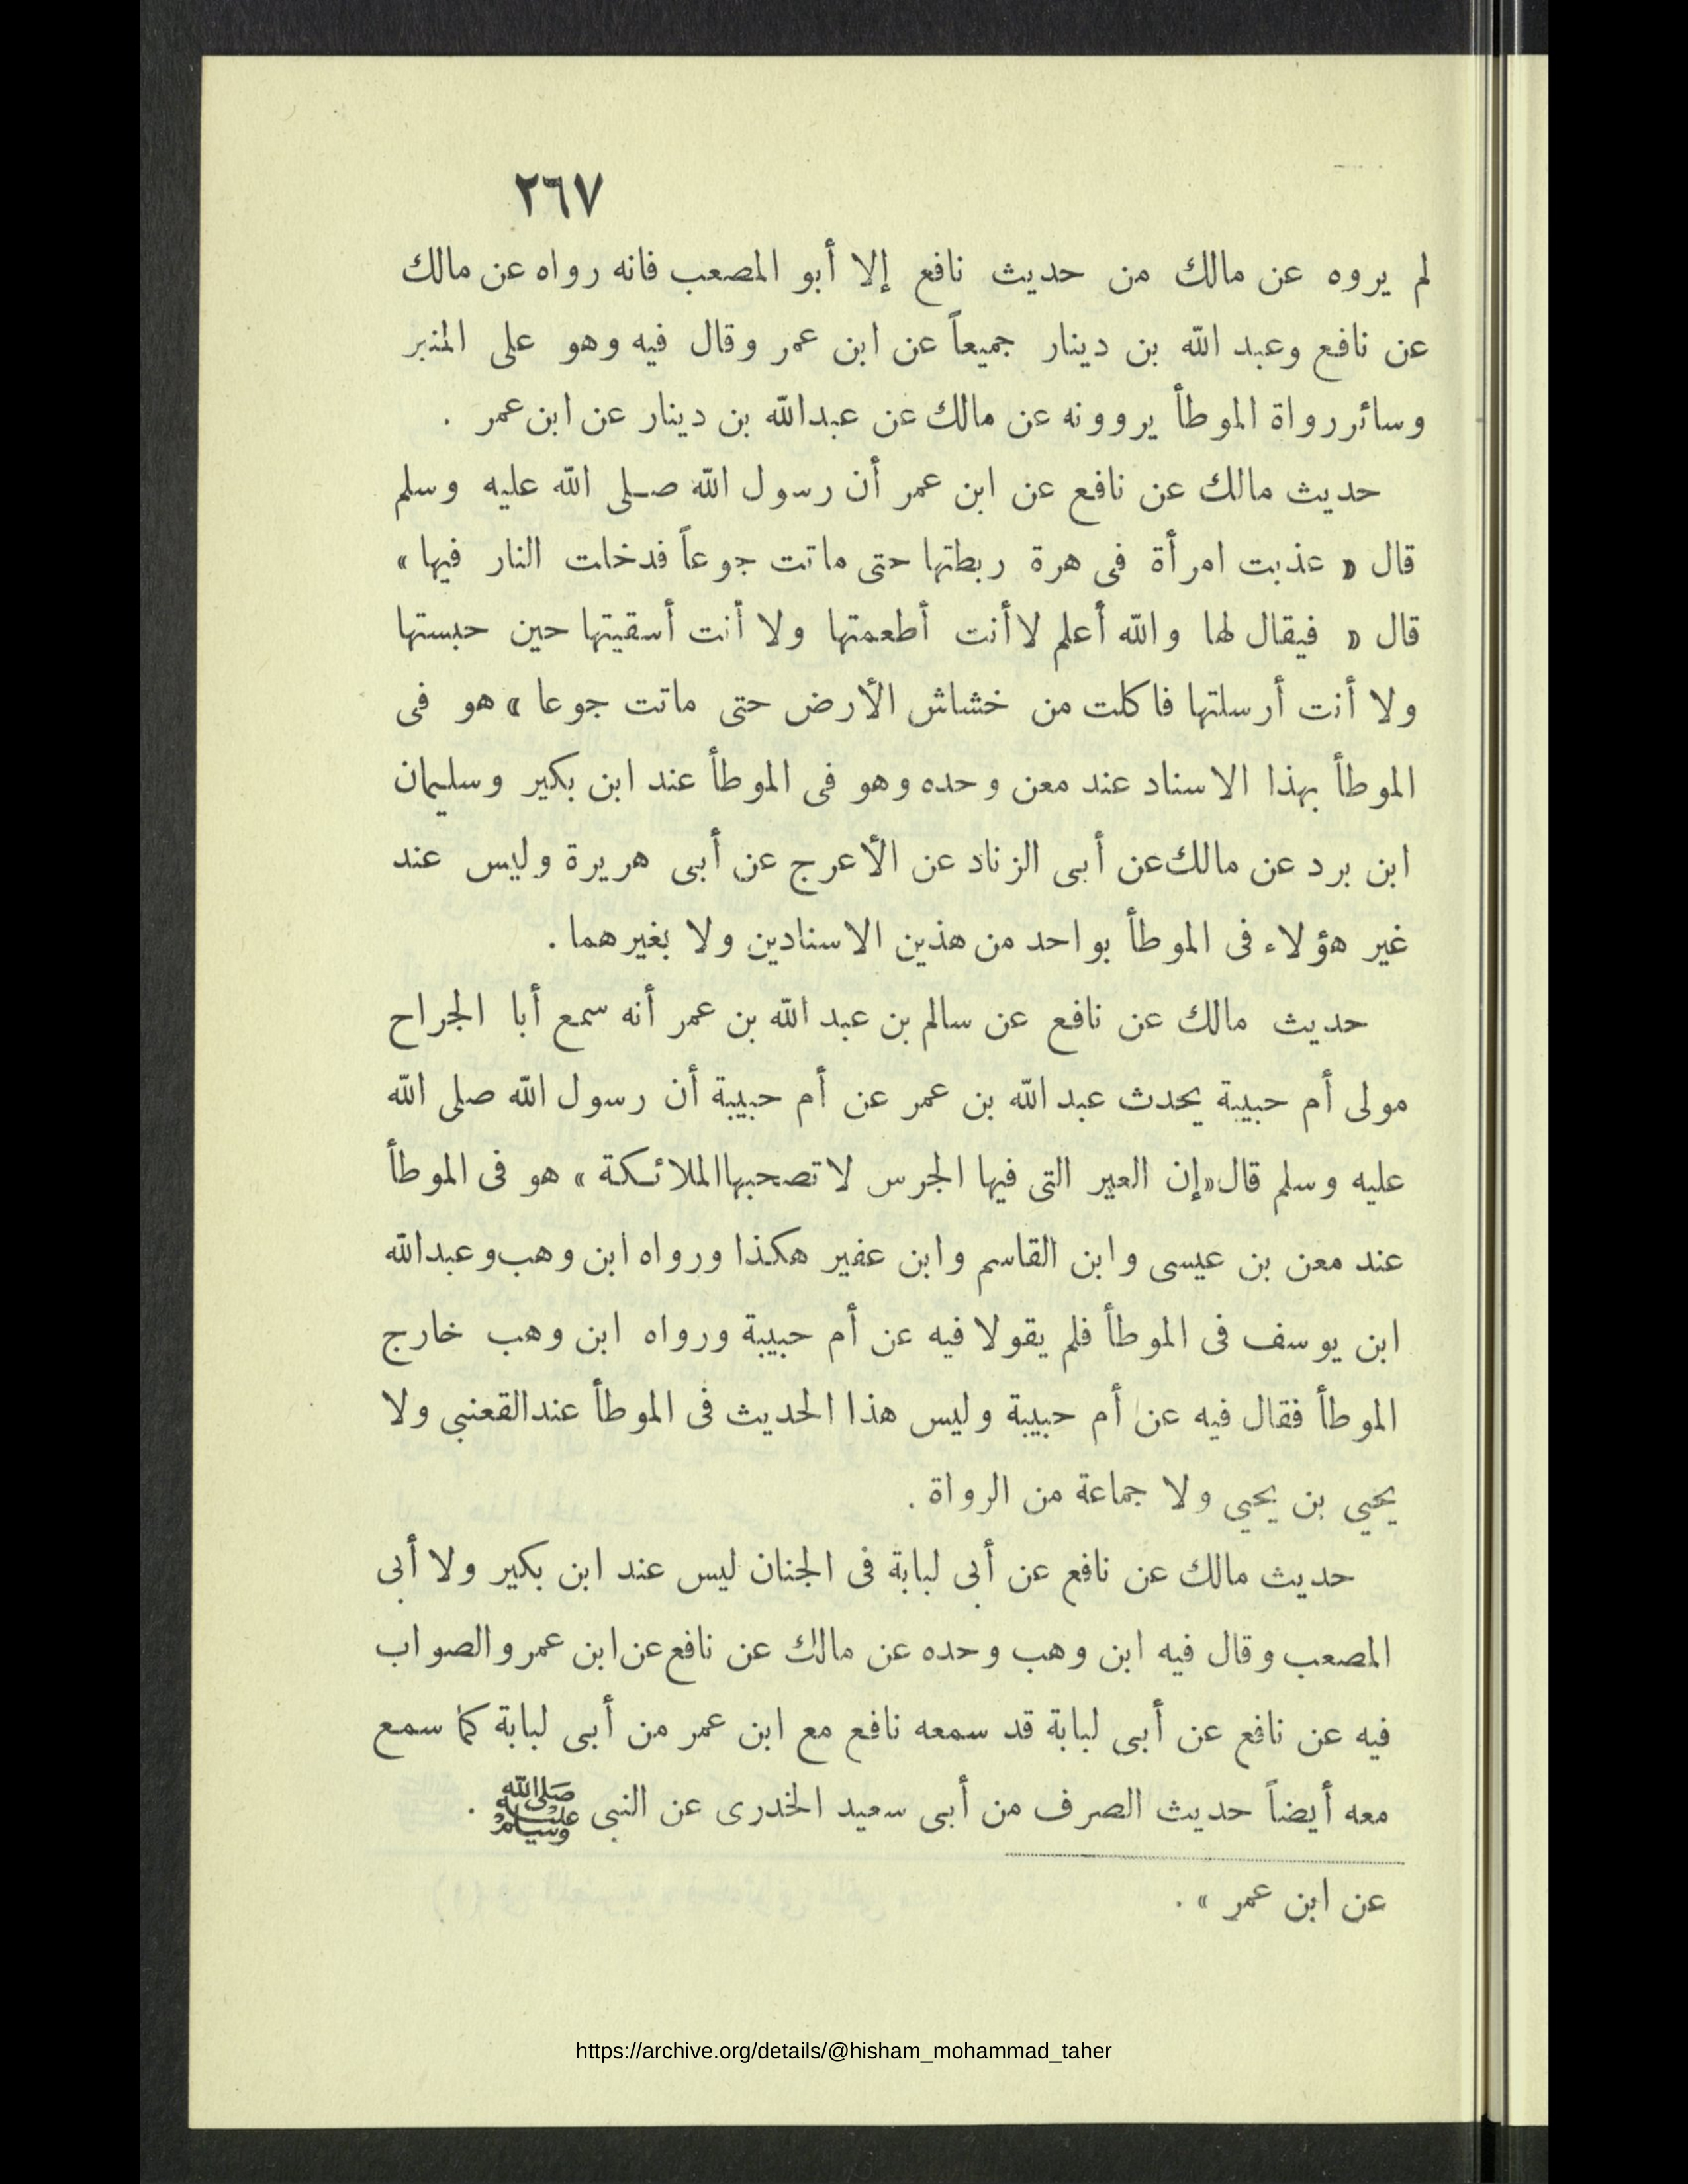 ٢٦٧
لم يروه عن مالك من حديث نافع إلا أبو المصعب فانه رواه عن مالك
عن نافع وعبد الله بن دينار جميعاً عن ابن عمر وقال فيه وهو على المنبر
وسائر رواة الموطأ يروونه عن مالك عن عبدالله بن دينار عن ابن عمر .
حديث مالك عن نافع عن ابن عمر أن رسول الله صلى الله عليه وسلم
قال « عذبت امرأة فى هرة ربطتها حتى ماتت جوعاً فدخلت النار فيها »
قال « فيقال لها والله أعلم لا أنت أطعمتها ولا أنت أسقيتها حين حبستها
ولا أنت أرسلتها فاكلت من خشاش الأرض حتى ماتت جوعا » هو فى
الموطأ بهذا الاسناد عند معن وحده وهو فى الموطأ عند ابن بكير وسليمان
ابن برد عن مالك عن أبى الزناد عن الأعرج عن أبى هريرة وليس عند
غير هؤلاء فى الموطأ بواحد من هذين الاسنادين ولا بغيرهما .
حديث مالك عن نافع عن سالم بن عبد الله بن عمر أنه سمع أبا الجراح
مولى أم حبيبة يحدث عبد الله بن عمر عن أم حبيبة أن رسول الله صلى الله
عليه وسلم قال «إن العير التى فيها الجرس لا تصحبها الملائكة » هو فى الموطأ
عند معن بن عيسى وابن القاسم وابن عفير هكذا ورواه ابن وهب وعبدالله
ابن يوسف فى الموطأ فلم يقولا فيه عن أم حبيبة ورواه ابن وهب خارج
الموطأ فقال فيه عن أم حبيبة وليس هذا الحديث فى الموطأ عند القعنبى ولا
يحيي بن يحيي ولا جماعة من الرواة .
حديث مالك عن نافع عن أبى لبابة فى الجنان ليس عند ابن بكير ولا أبى
المصعب وقال فيه ابن وهب وحده عن مالك عن نافع عن ابن عمر والصواب
فيه عن نافع عن أبى لبابة قد سمعه نافع مع ابن عمر من أبى لبابة كما سمع
معه أيضاً حديث الصرف من أبى سعيد الخدرى عن النبى ﷺ .
عن ابن عمر » .
https://archive.org/details/@hisham_mohammad_taher